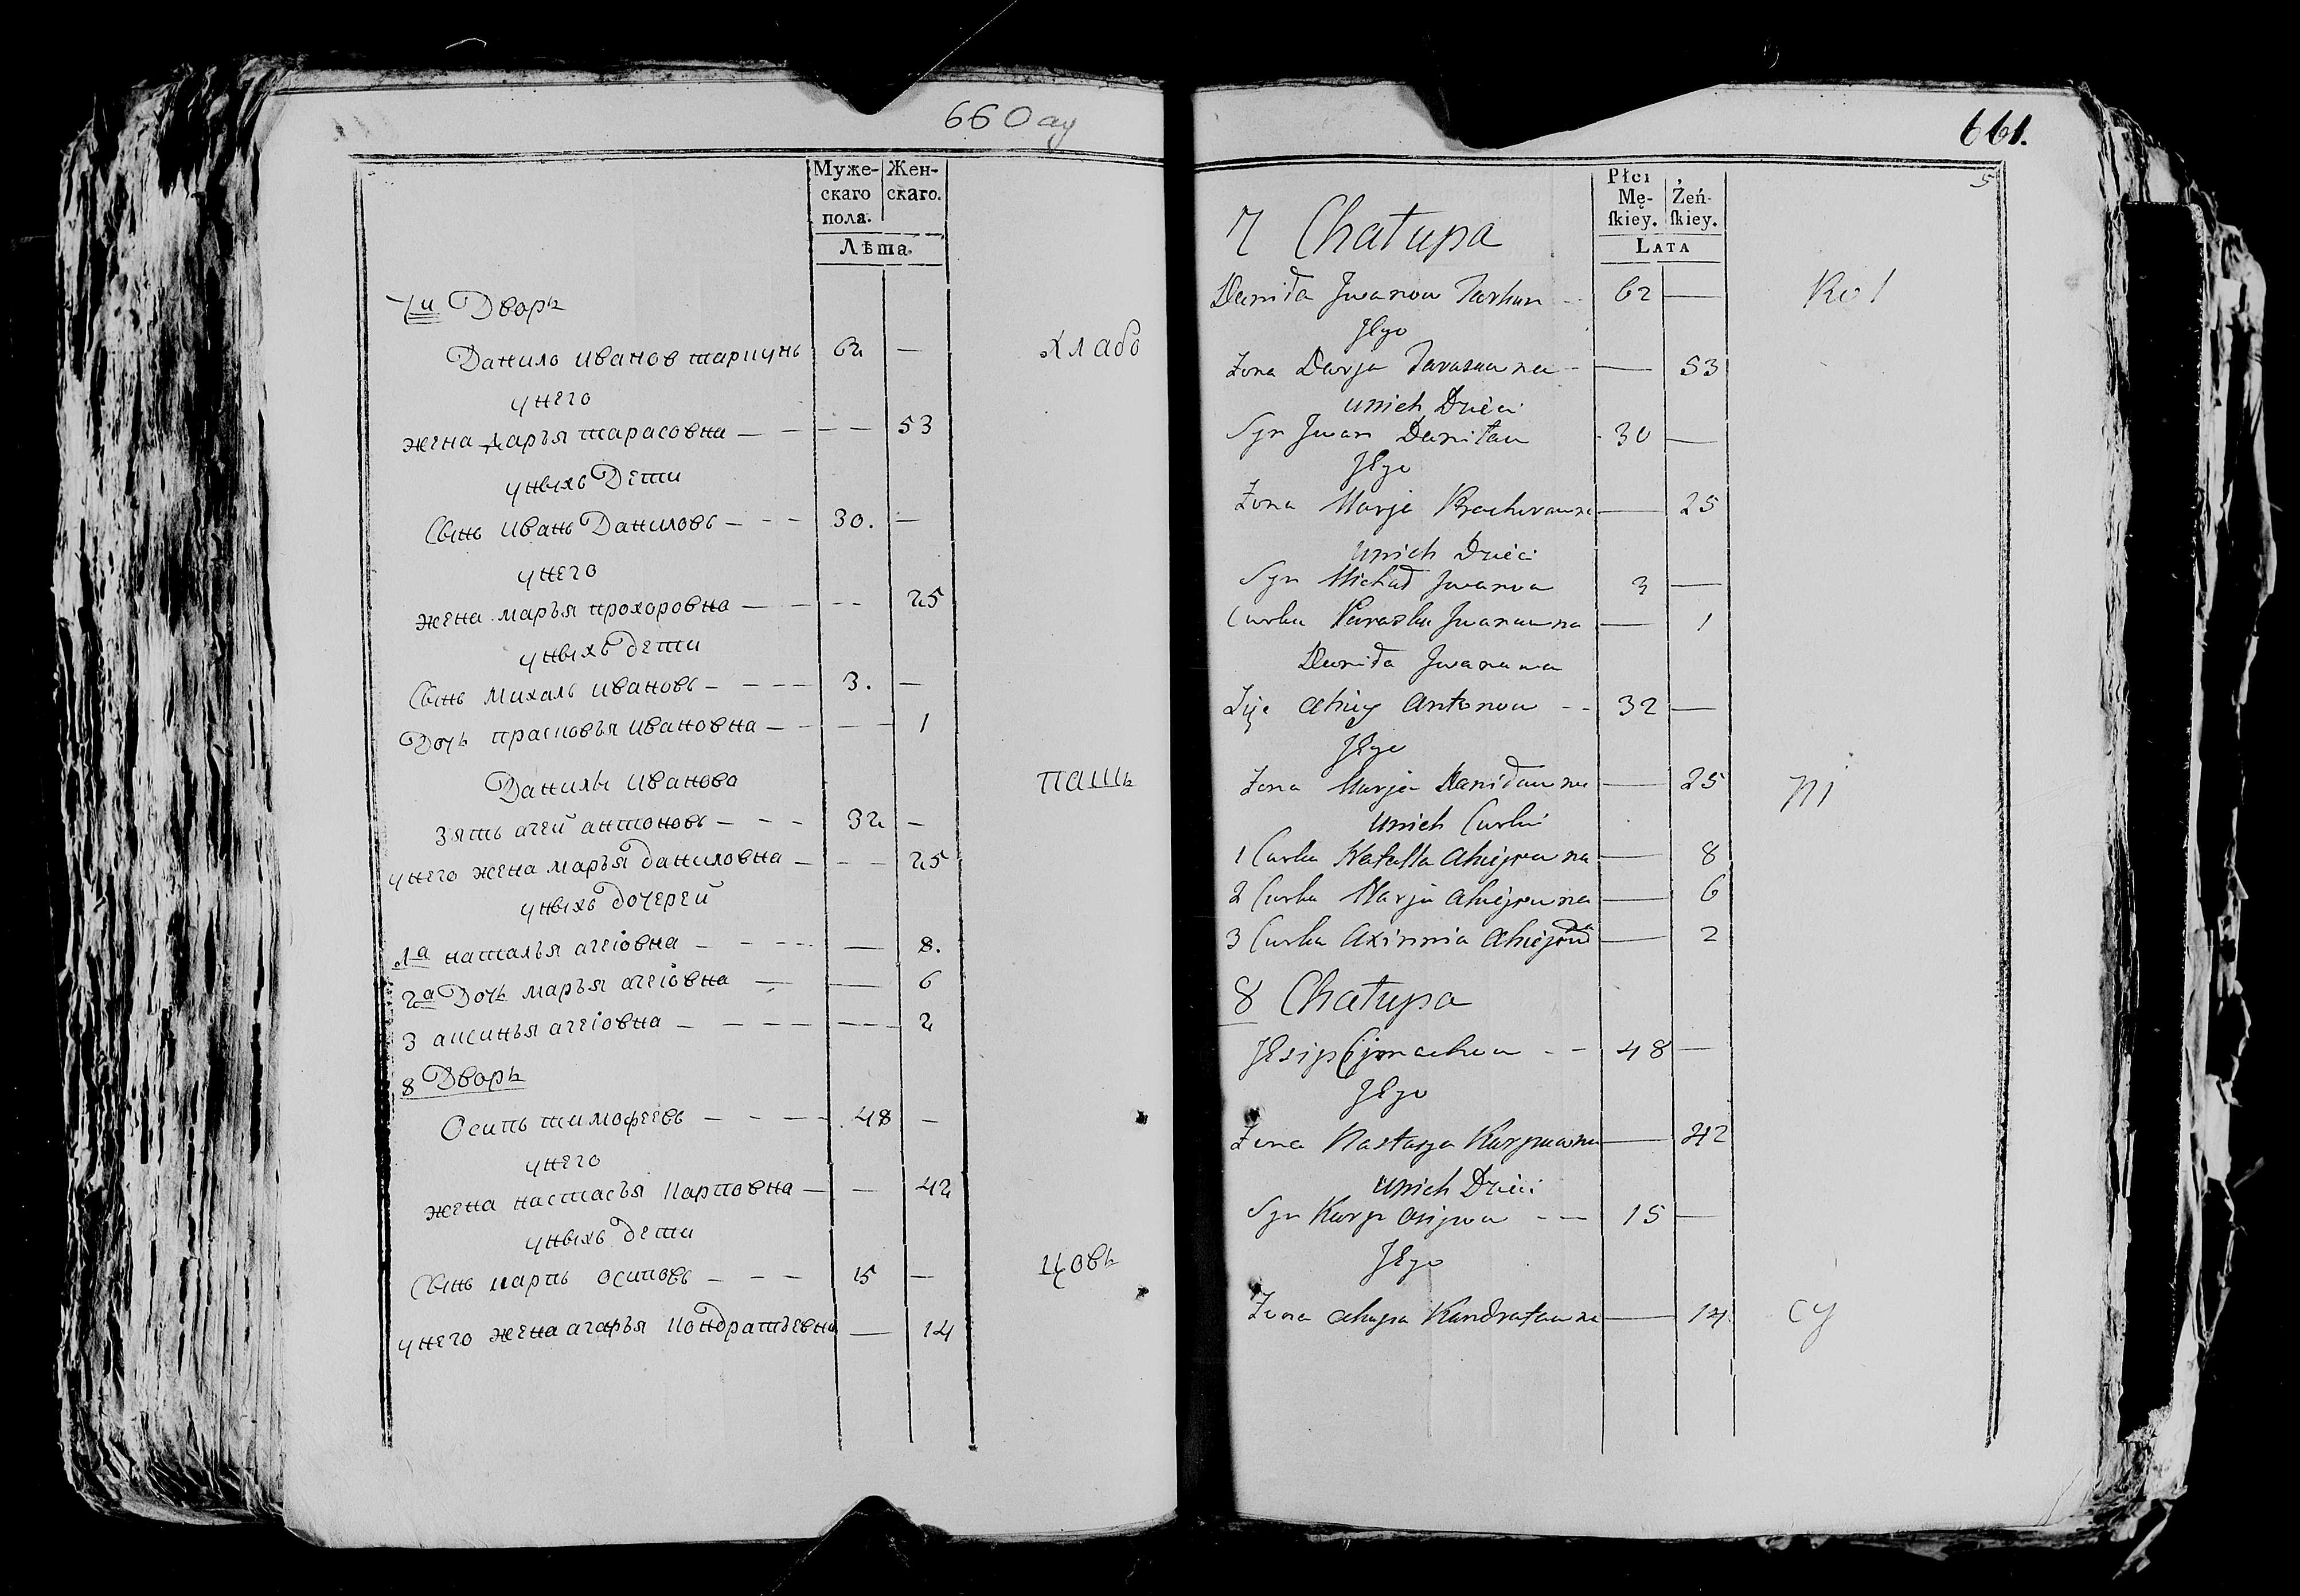 660 ау
Муже-
скаго
пола.
Жен-
скаго.
Лѣта.
7й Дворъ
Данило Иванов таркунъ 62 —
хлабо
у него
жена дарья тарасовна — — — — 53
у ныхъ Дети
Сынъ Иванъ Даниловъ — — — 30. —
у него
жена марья прохоровна — — — 25
у ныхъ дети
Сынъ михалъ ивановъ — — — — 3. —
Дочь прасковья ивановна — — — — 1
Данилы иванова
пашь
зять агей антоновъ — — — 32 —
у него жена марья даниловна — — — 25
у ныхъ дочерей
1а наталья агеiовна — — — — 8.
2а Дочь марья агеiовна — — 6
3 аксинья агеiовна — — — — — — — 2
8 Дворъ
Осипъ тимофеевъ — — — — 48 —
у него
жена настасья карповна — — 42
у ныхъ дети
Сынъ карпъ осиповъ — — — 15 —
цовъ
у него жена агарья кондратьевна — 14
661.
5
Płci
Mę-
skiey.
Żeń-
skiey.
LATA
7 Chałupa
Daniła Jwanow Tarkun - - 62 —
Rol
Jego
Żona Darja Tarasawna - — 53
unich Dzieci
Syn Jwan Daniław 30 —
Jego
Żona Marja Pracharawna — 25
unich Dzieci
Syn Michał Jwanow 3 —
Curka Paraska Jwanawna — 1
Daniła Jwanawa
Zięć Ahiey Antonow - - 32 —
Jego
Żona Marja Daniławna — 25
ni
unich Curki
1 Curka Natalla Ahiejewna — 8
2 Curka Marja Ahiejewna — 6
3 Curka Axinnia Ahiejewna — 2
8 Chałupa
- - 48 —
Jego
Żona Nastasja Karpawna — 42
unich Dzieci
Syn Karp Osipow - - 15 —
Jego
Żona Ahapa Kandratawna — 14
cy